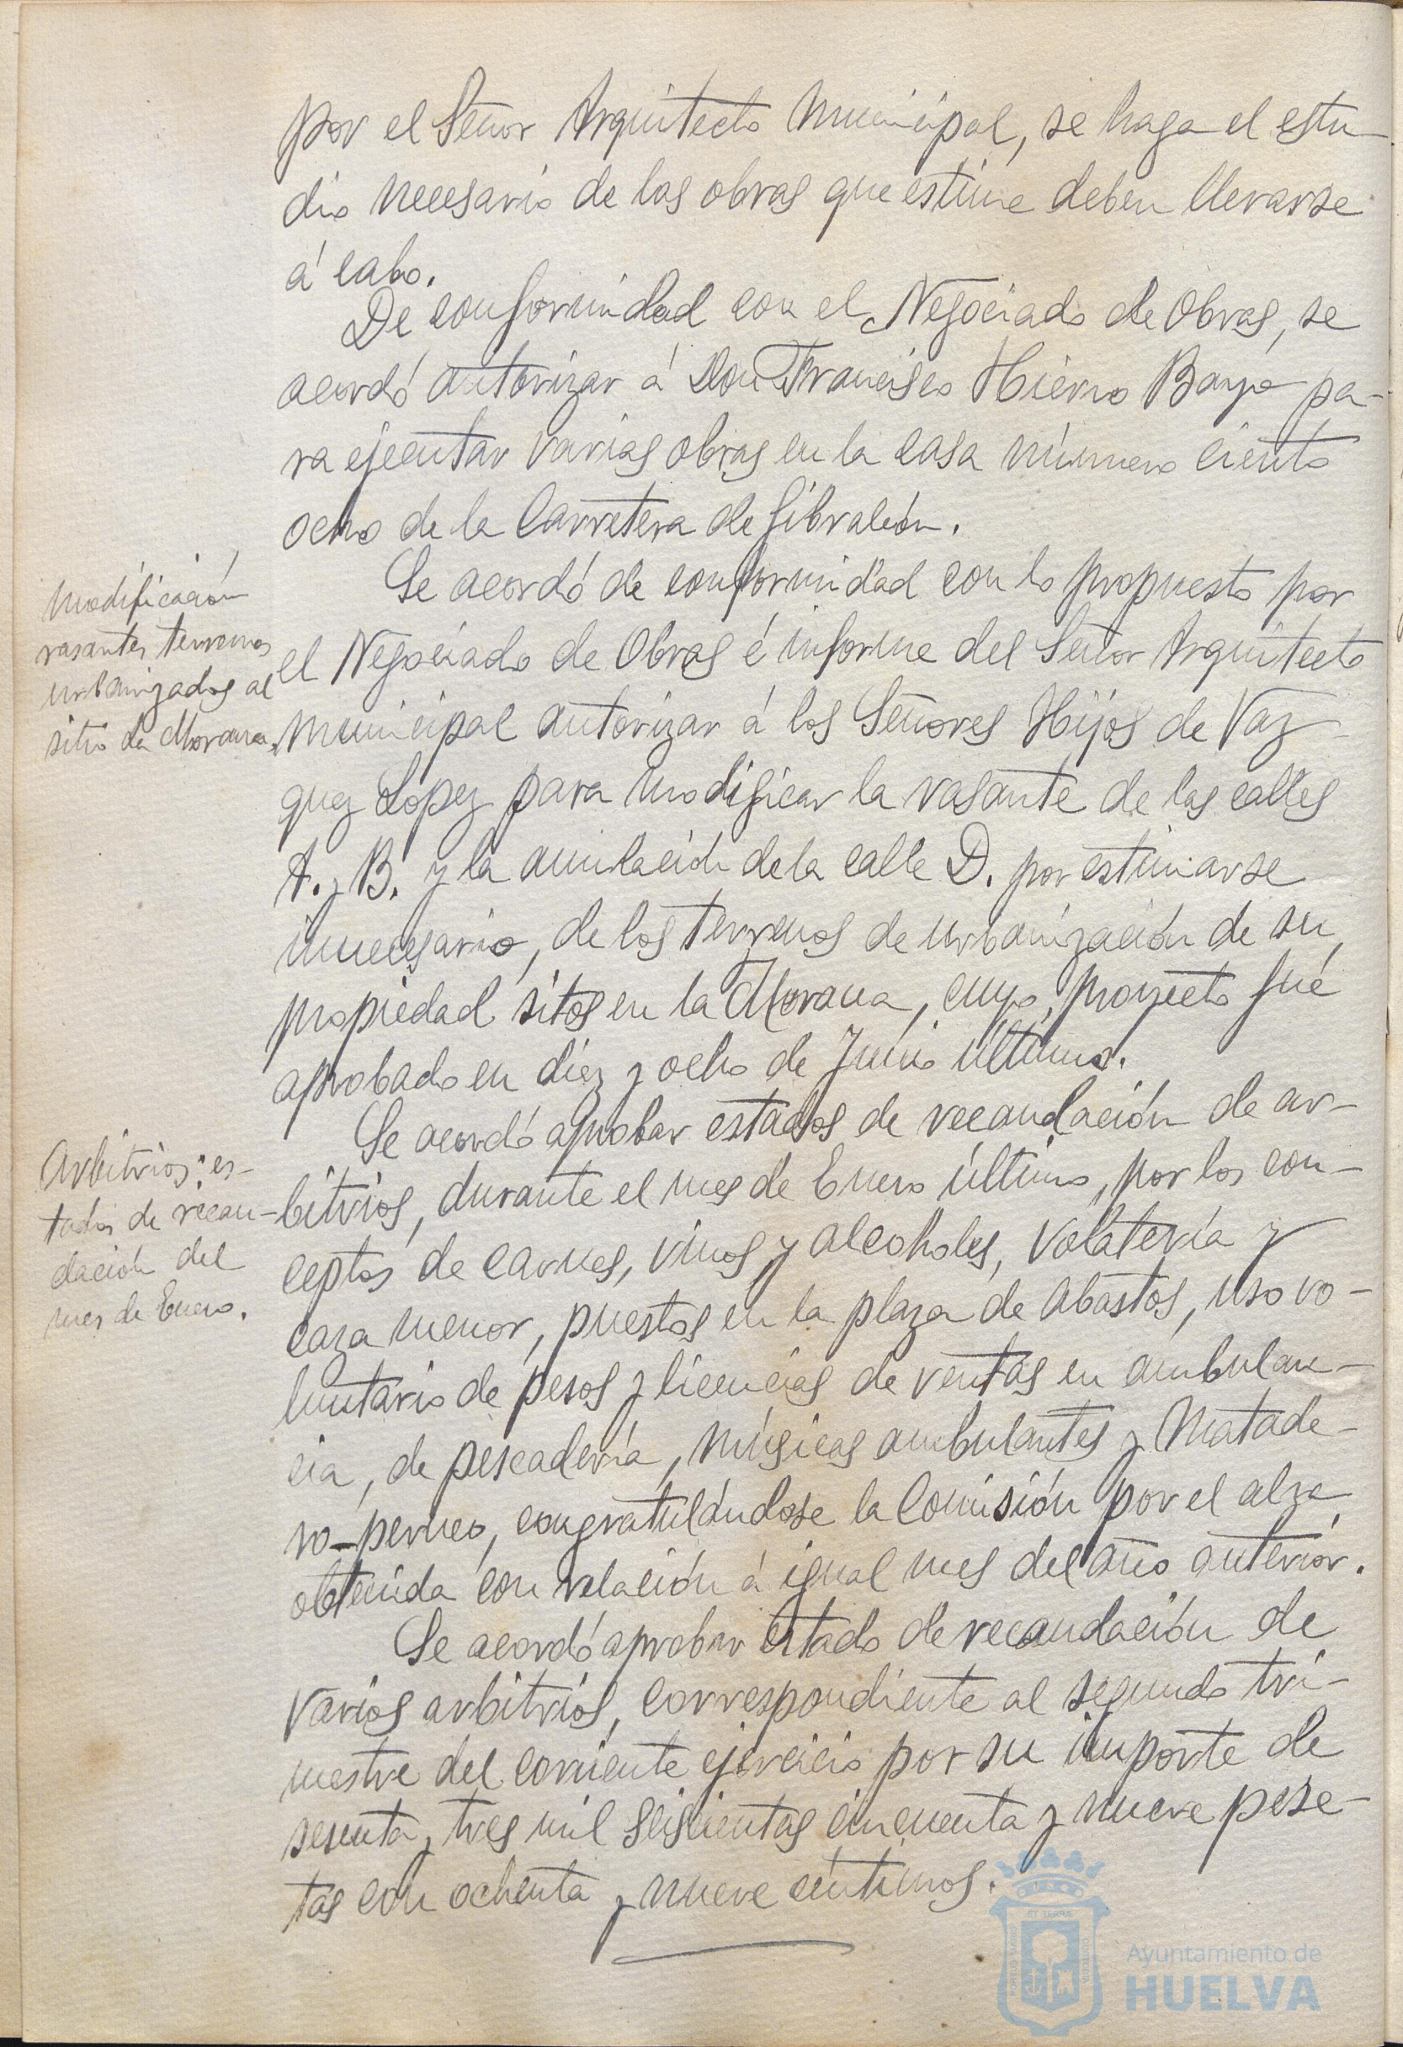 por el Señor Arquitecto Municipal, se haga el estu-
dio necesario de las obras que estime deben llevarse
á cabo.
De conformidad con el Negociado de Obras, se
acordó autorizar á Don Francisco Hierro Bayo pa-
ra ejecutar varias obras en la casa número ciento
ocho de la Carretera de Gibraleón.
Modificación
rasantes terrenos
urbanizados al
sitio La Morana.
Se acordó de conformidad con lo propuesto por
el Negociado de Obras é informe del Señor Arquitecto
Municipal autorizar á los Señores Hijos de Vaz-
quez Lopez para modificar la rasante de las calles
A. y B. y la anulación de la calle D. por estimarse
innecesario, de los terrenos de urbanización de su
propiedad sitos en la Morana, cuyo proyecto fué
aprobado en diez y ocho de Junio último.
Arbitrios: es-
tados de recau-
dación del
mes de Enero.
Se acordó aprobar estados de recaudación de ar-
bitrios, durante el mes de Enero último, por los con-
ceptos de carnes, vinos y alcoholes, volatería y
caza menor, puestos en la plaza de Abastos, uso vo-
luntario de pesos y licencias de ventas en ambulan-
cia, de pescadería, músicas ambulantes y Matade-
ro-perneo, congratulándose la Comisión por el alza
obtenida con relación á igual mes del año anterior.
Se acordó aprobar estado de recaudación de
varios arbitrios, correspondiente al segundo tri-
mestre del corriente ejercicio por su importe de
sesenta y tres mil seiscientas cincuenta y nueve pese-
tas con ochenta y nueve céntimos.
Ayuntamiento de
HUELVA